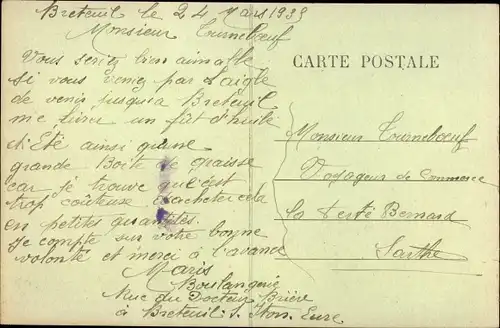 Breteuil le 24 Mars 1939
Monsieur Tournebœuf
Vous seriez bien aimable
si vous venez par Laigle
de venir jusqua Breteuil
me livrer un fût d'huile
d'Eté ainsi qu'une
grande Boîte de graisse
car je trouve qu'elle est
trop couteuse d'acheter cela
en petites quantités.
Je compte sur votre bonne
volonté et merci à l'avance
Maris
Boulangerie
Rue du Docteur Brière
à Breteuil s. Iton. Eure
CARTE POSTALE
Monsieur Tournebœuf
Voyageur de Commerce
La Ferté Bernard
Sarthe